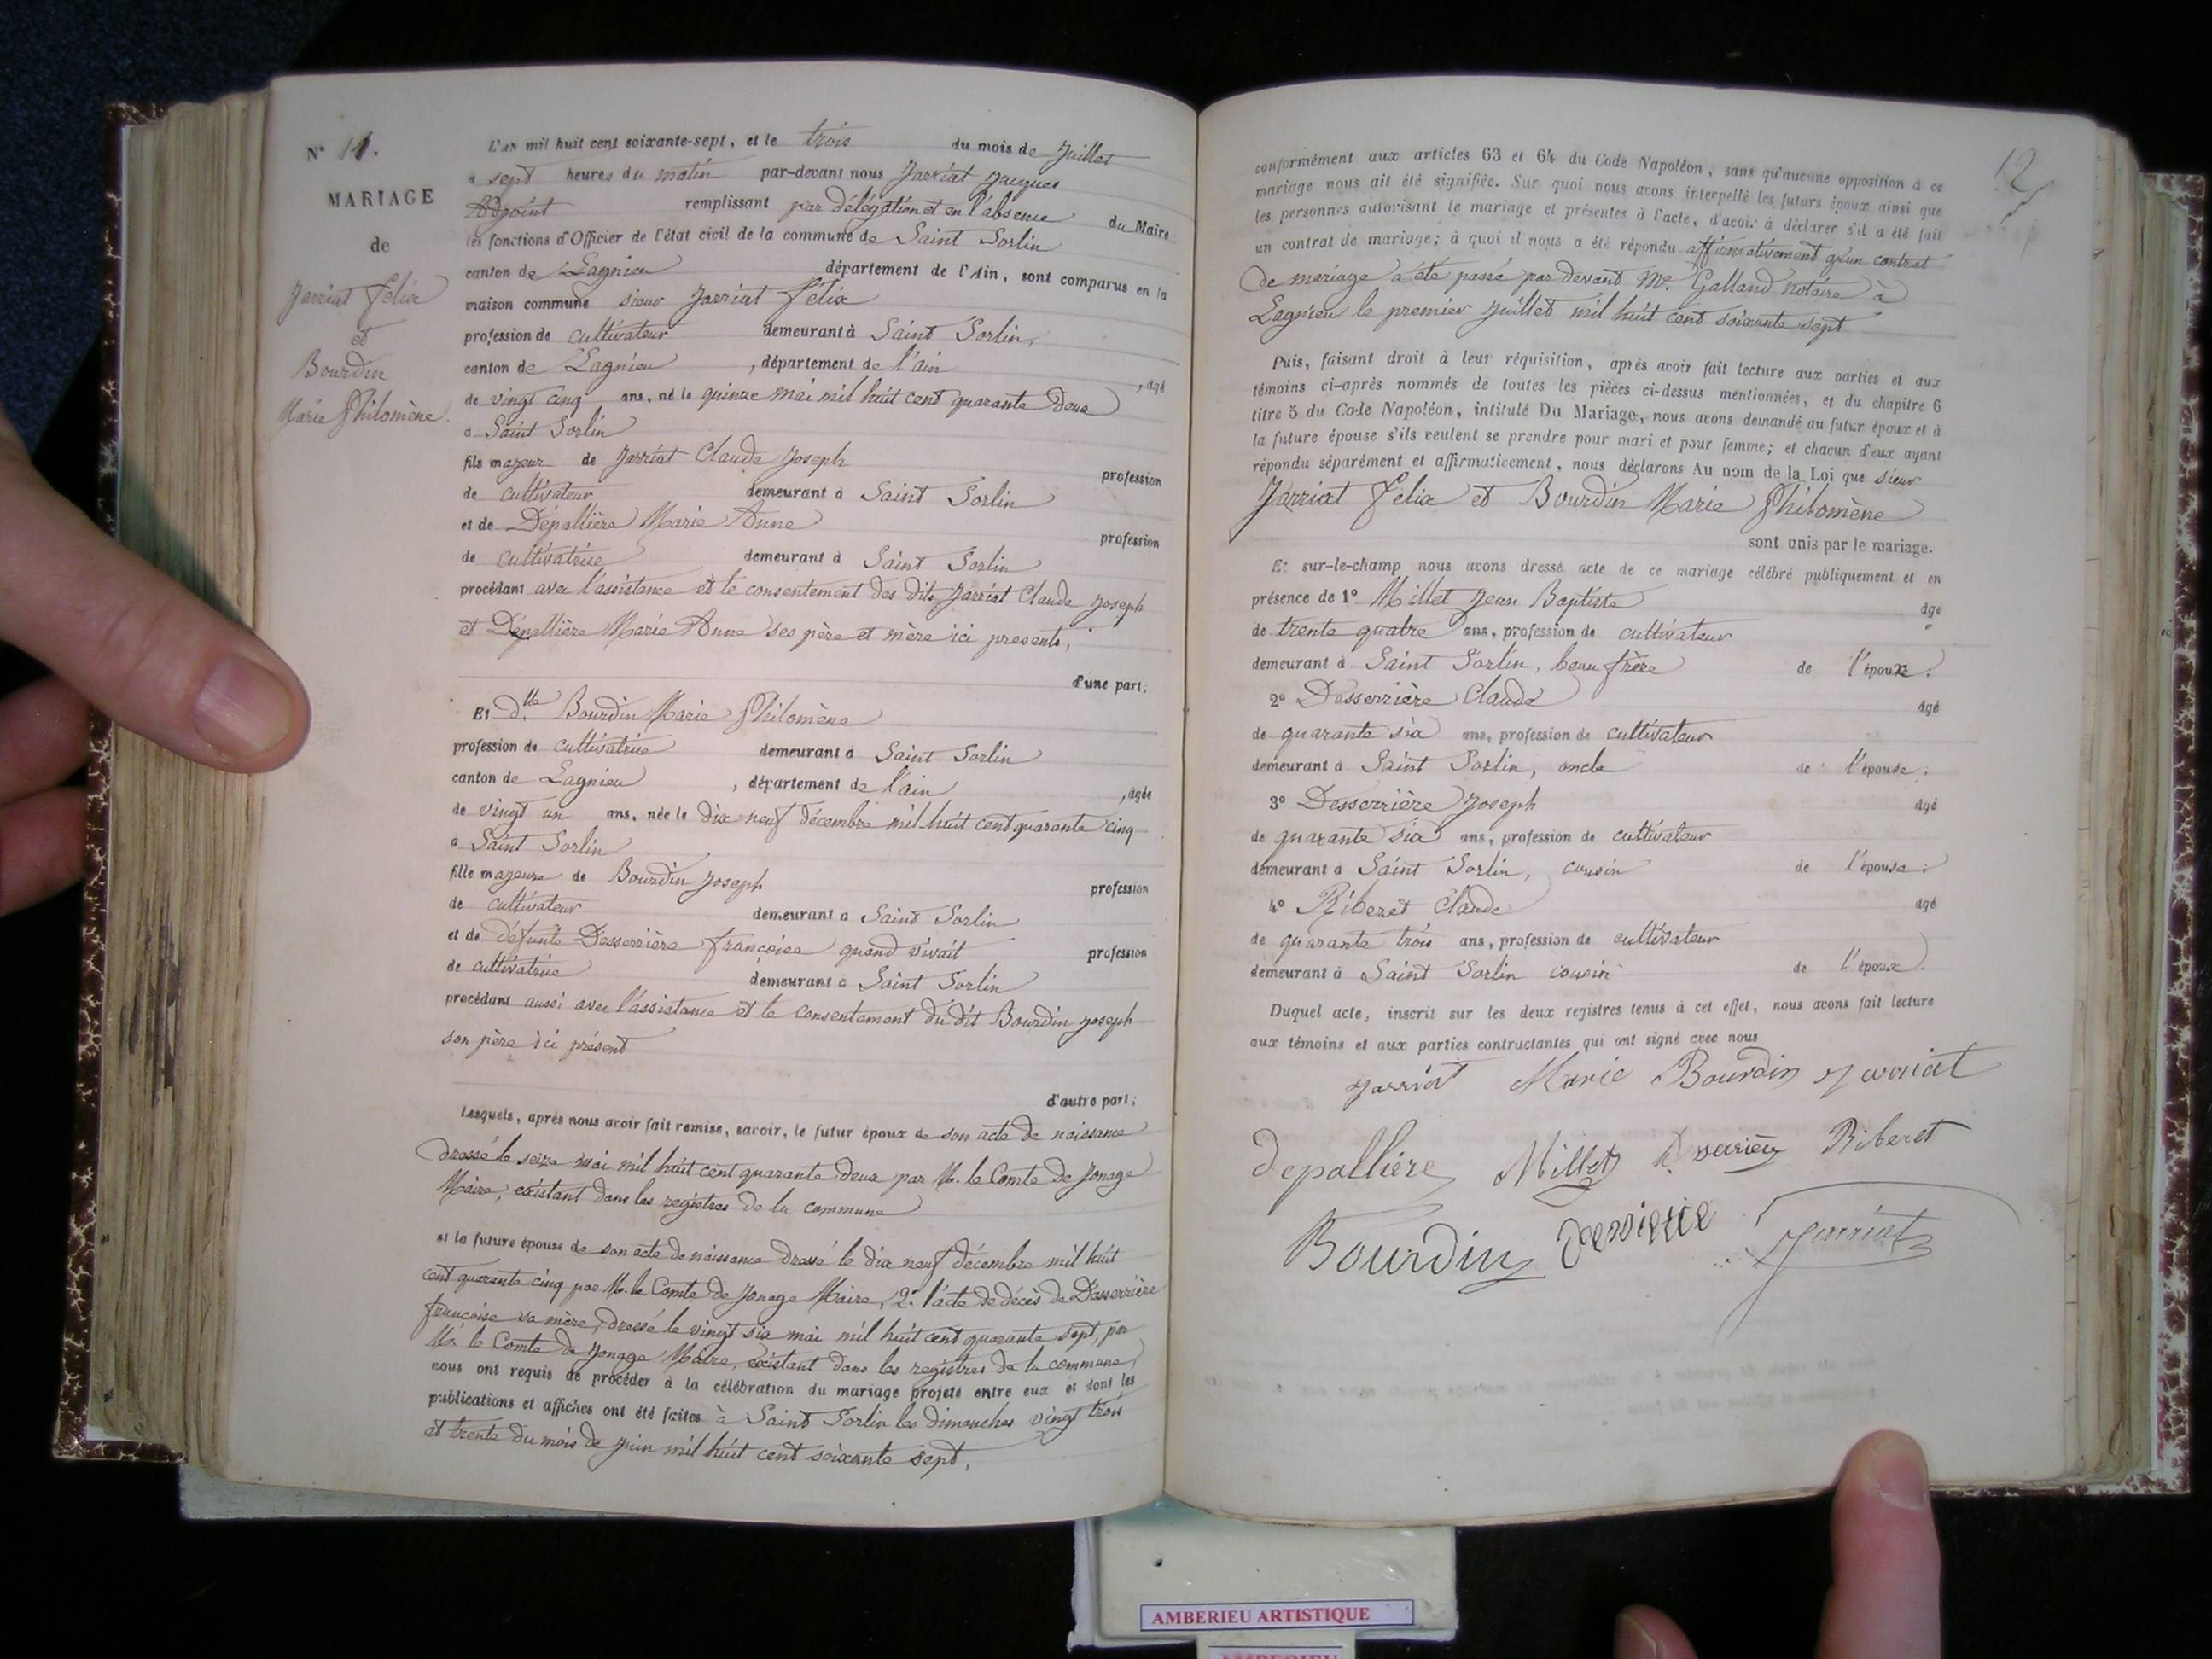 N° 11.
MARIAGE
de
Jarriat Félix
et
Bourdin
Marie Philomène.
L'AN mil huit cent soixante-sept, et le trois du mois de Juillet
à sept heures du matin par-devant nous Jarriat Jacques
Adjoint remplissant par délégation et en l'absence du Maire
les fonctions d'Officier de l'état civil de la commune de Saint Sorlin
canton de Lagnieu département de l'Ain, sont comparus en la
maison commune sieur Jarriat Félix
profession de cultivateur demeurant à Saint Sorlin,
canton de Lagnieu, département de l'ain, âgé
de vingt cinq ans, né le quinze mai mil huit cent quarante deux
à Saint Sorlin
fils majeur de Jarriat Claude Joseph profession
de cultivateur demeurant à Saint Sorlin
et de Dépallière Marie Anne profession
de cultivatrice demeurant à Saint Sorlin
procédant avec l'assistance et le consentement des dits Jarriat Claude Joseph
et Dépallière Marie Anne ses père et mère ici présents,
d'une part;
Et dlle Bourdin Marie Philomène
profession de cultivatrice demeurant à Saint Sorlin
canton de Lagnieu, département de l'ain, âgée
de vingt un ans, née le dix neuf décembre mil huit cent quarante cinq
à Saint Sorlin
fille majeure de Bourdin Joseph profession
de cultivateur demeurant à Saint Sorlin
et de défunte Desserrière françoise quand vivait profession
de cultivatrice demeurant à Saint Sorlin
procédant aussi avec l'assistance et le consentement du dit Bourdin Joseph
son père ici présent
d'autre part;
Lesquels, après nous avoir fait remise, savoir, le futur époux de son acte de naissance
dressé le seize mai mil huit cent quarante deux par M. le Comte de Jonage
Maire, existant dans les registres de la commune
et la future épouse de son acte de naissance dressé le dix neuf décembre mil huit
cent quarante cinq par M. le Comte de Jonage Maire, 2° l'acte de décès de Desserrière
françoise sa mère, dressé le vingt six mai mil huit cent quarante sept, par
M. le Comte de Jonage Maire, existant dans les registres de la commune,
nous ont requis de procéder à la célébration du mariage projeté entre eux et dont les
publications et affiches ont été faites à Saint Sorlin les dimanches vingt trois
et trente du mois de juin mil huit cent soixante sept,
12
conformément aux articles 63 et 64 du Code Napoléon, sans qu'aucune opposition à ce
mariage nous ait été signifiée. Sur quoi nous avons interpellé les futurs époux ainsi que
les personnes autorisant le mariage et présentes à l'acte, d'avoir à déclarer s'il a été fait
un contrat de mariage; à quoi il nous a été répondu affirmativement qu'un contrat
de mariage a été passé par devant Me. Galland notaire à
Lagnieu le premier Juillet mil huit cent soixante sept
Puis, faisant droit à leur réquisition, après avoir fait lecture aux parties et aux
témoins ci-après nommés de toutes les pièces ci-dessus mentionnées, et du chapitre 6
titre 5 du Code Napoléon, intitulé Du Mariage, nous avons demandé au futur époux et à
la future épouse s'ils veulent se prendre pour mari et pour femme; et chacun d'eux ayant
répondu séparément et affirmativement, nous déclarons Au nom de la Loi que sieur
Jarriat Félix et Bourdin Marie Philomène
sont unis par le mariage.
Et sur-le-champ nous avons dressé acte de ce mariage célébré publiquement et en
présence de 1° Millet Jean Baptiste âgé
de trente quatre ans, profession de cultivateur
demeurant à Saint Sorlin, beau frère de l'époux;
2° Desserrière Claude âgé
de quarante six ans, profession de cultivateur
demeurant à Saint Sorlin, oncle de l'épouse;
3° Desserrière Joseph âgé
de quarante six ans, profession de cultivateur
demeurant à Saint Sorlin, cousin de l'épouse;
4° Riberet Claude âgé
de quarante trois ans, profession de cultivateur
demeurant à Saint Sorlin cousin de l'époux.
Duquel acte, inscrit sur les deux registres tenus à cet effet, nous avons fait lecture
aux témoins et aux parties contractantes qui ont signé avec nous
Jarriat Marie Bourdin Jarriat
depallière Millet Riberet
Bourdin Jarriat
AMBERIEU ARTISTIQUE